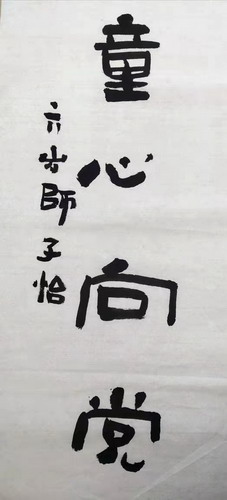 童心向党
六岁師子怡